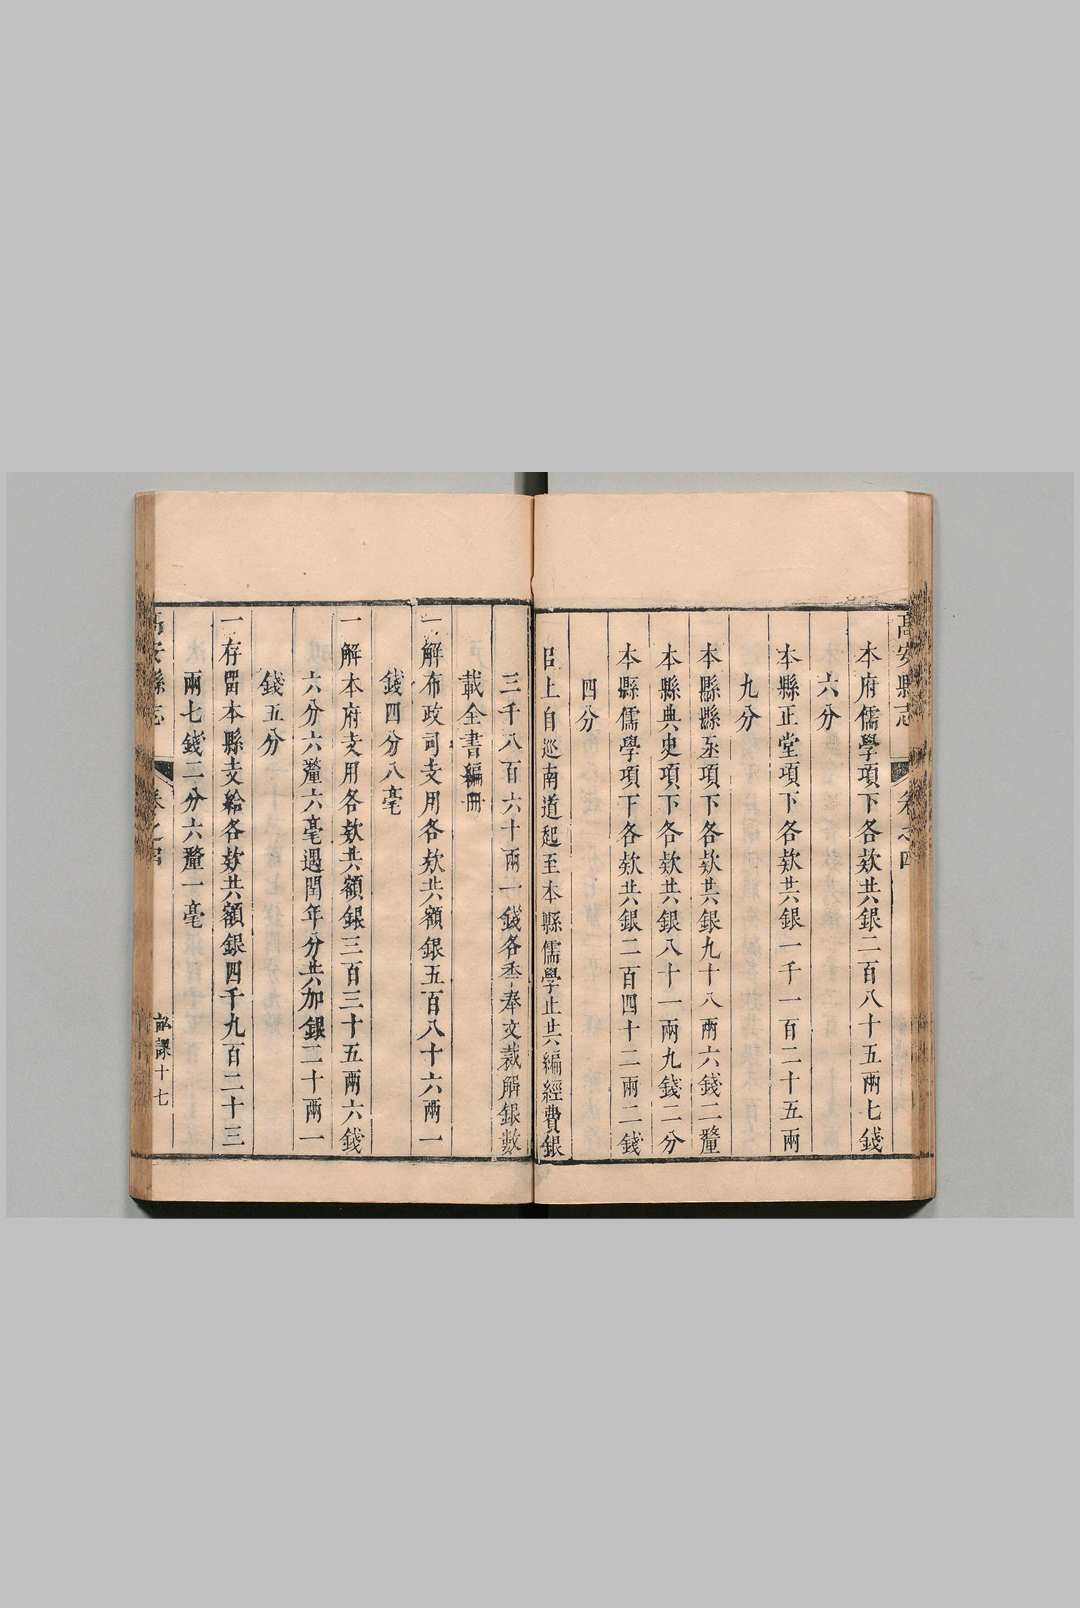 高安縣志 卷之四
本府儒學項下各款共銀二百八十五兩七錢
六分
本縣正堂項下各款共銀一千一百二十五兩
九分
本縣縣丞項下各款共銀九十八兩六錢二釐
本縣典史項下各款共銀八十一兩九錢二分
本縣儒學項下各款共銀二百四十二兩二錢
四分
已上自巡南道起至本縣儒學止共編經費銀
三千八百六十兩一錢各季奉文裁解銀數
載全書編冊
一解布政司支用各款共額銀五百八十六兩一
錢四分八毫
一解本府支用各款共額銀三百三十五兩六錢
六分六釐六毫遇閏年分共加銀二十兩一
錢五分
一存留本縣支給各款共額銀四千九百二十三
兩七錢二分六釐一毫
高安縣志 卷之四 課十七